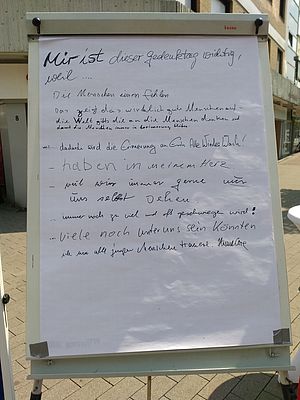 Mir ist dieser Gedenktag wichtig,
weil ....
Die Menschen einem fehlen
Das zeigt das wirklich gute Menschen auf
die Welt gibts die an die Menschen denken und
damit die Menschen immer in Erinnerung bleiben
... dadurch wird die Erinnerung an
- haben in meinem Herz
- weil wir immer gerne nur
uns selbst sehen
- immer noch zu viel und oft geschwiegen wird!
... viele noch unter uns sein könnten
ich um alle jungen Menschen trauere.